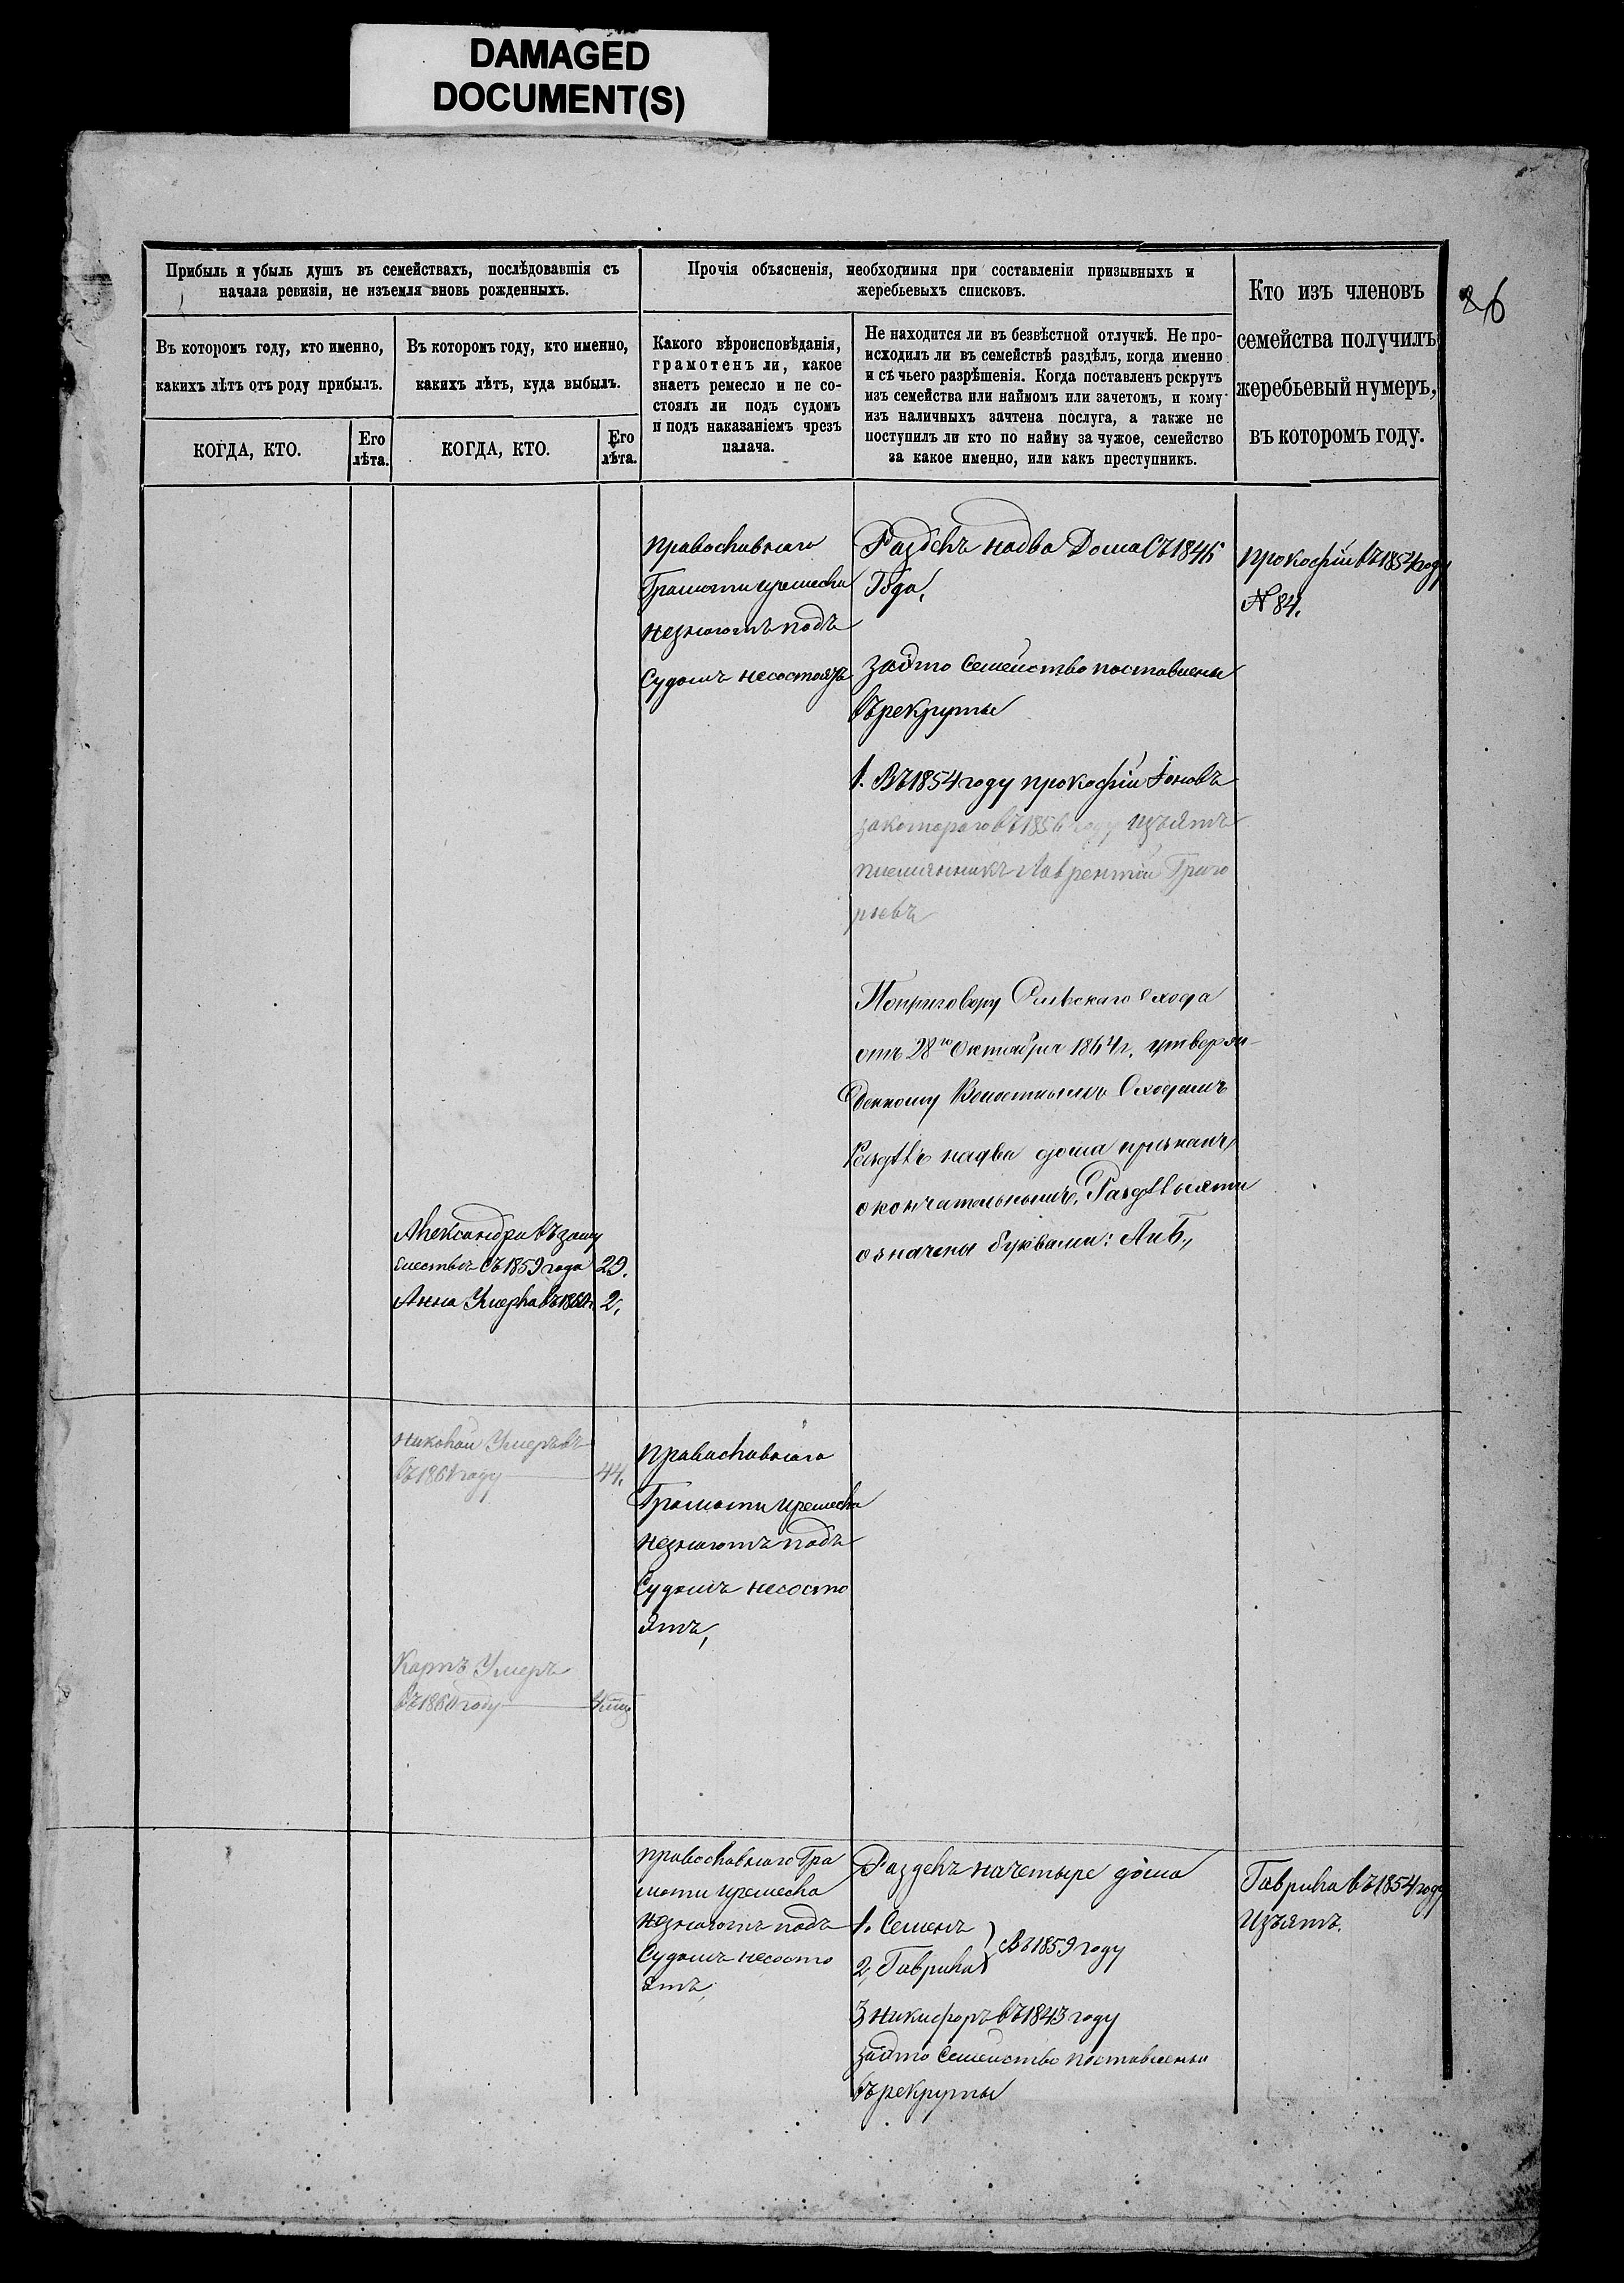 DAMAGED
DOCUMENT(S)
26
Прибыль и убыль душъ въ семействахъ, послѣдовавшія съ
начала ревизіи, не изъемля вновь рожденныхъ.
Прочія объясненія, необходимыя при составленіи призывныхъ и
жеребьевыхъ списковъ.
Кто изъ членовъ
семейства получилъ
жеребьевый нумеръ,
въ которомъ году.
Въ которомъ году, кто именно,
какихъ лѣтъ отъ роду прибылъ.
Въ которомъ году, кто именно,
какихъ лѣтъ, куда выбылъ.
Какого вѣроисповѣданія,
грамотенъ ли, какое
знаетъ ремесло и не со-
стоялъ ли подъ судомъ
и подъ наказаніемъ чрезъ
палача.
Не находится ли въ безвѣстной отлучкѣ. Не про-
исходилъ ли въ семействѣ раздѣлъ, когда именно
и съ чьего разрѣшенія. Когда поставленъ рекрутъ
изъ семейства или наймомъ или зачетомъ, и кому
изъ наличныхъ зачтена послуга, а также не
поступилъ ли кто по найму за чужое, семейство
за какое именно, или какъ преступникъ.
КОГДА, КТО.
Его
лѣта.
КОГДА, КТО.
Его
лѣта.
православнаго
Грамоти иремесла
незнаютъ подъ
Судомъ несостоятъ
Раздѣлъ надва Дома Съ 1846
Года,
заѣто Семейство поставлены
въ рекруты
1. Въ 1854 году прокофій Іоновъ
закотораго въ 1856 году изъятъ
племянникъ Лаврентій Григо
рьевъ
Поприговору Сельскаго Схода
отъ 28го Октября 1864 г. утверж-
денному Волостнымъ Сходомъ
Раздѣлъ надва дома признанъ
окончательнымъ. Раздѣлы эти
означены буквами: А и Б.,
прокофій въ 1854 году
N 84.
Александра въ заму
жествѣ Съ 1859 года 29.
Анна Умерла въ 1860 г. 2.
николай Умеръ
въ 1861 году 44.
Карпъ Умеръ
въ 1860 году
православнаго
Грамоти иремесла
незнаютъ подъ
Судомъ несосто
ятъ,
православнаго Гра
моти иремесла
незнаютъ подъ
Судомъ несосто
ятъ,
Разделъ начетыре дома
1. Семенъ
2, Гаврила
Въ 1859 году
3 никифоръ въ 1843 году
заѣто Семейство поставлены
въ рекруты
Гаврила въ 1854 году
Изъятъ.